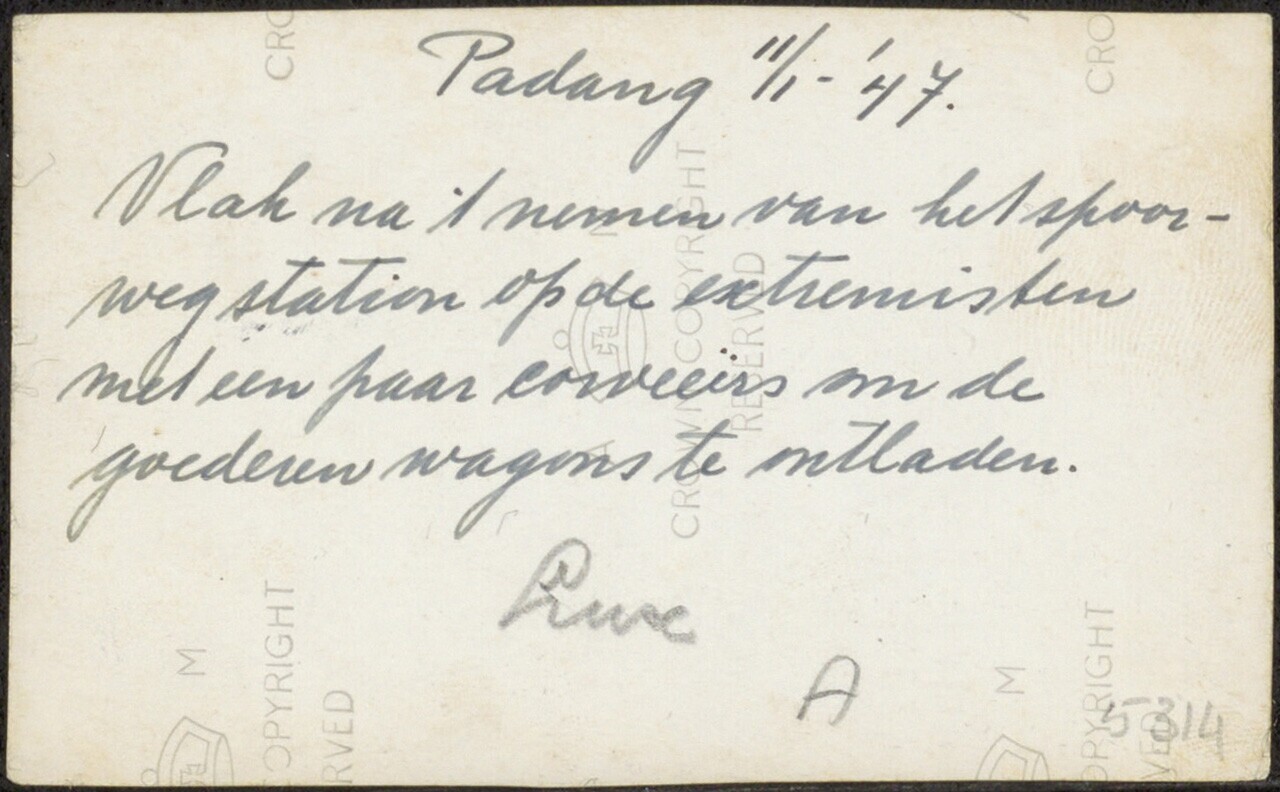 Padang 11/1-'47.
Vlak na 't nemen van het spoor-
wegstation op de extremisten
met een paar corveeërs om de
goederen wagons te ontladen.
A
5314
CROWN COPYRIGHT
RESERVED
M
COPYRIGHT
RVED
M
OPYRIGHT
VED
CRO
CRO